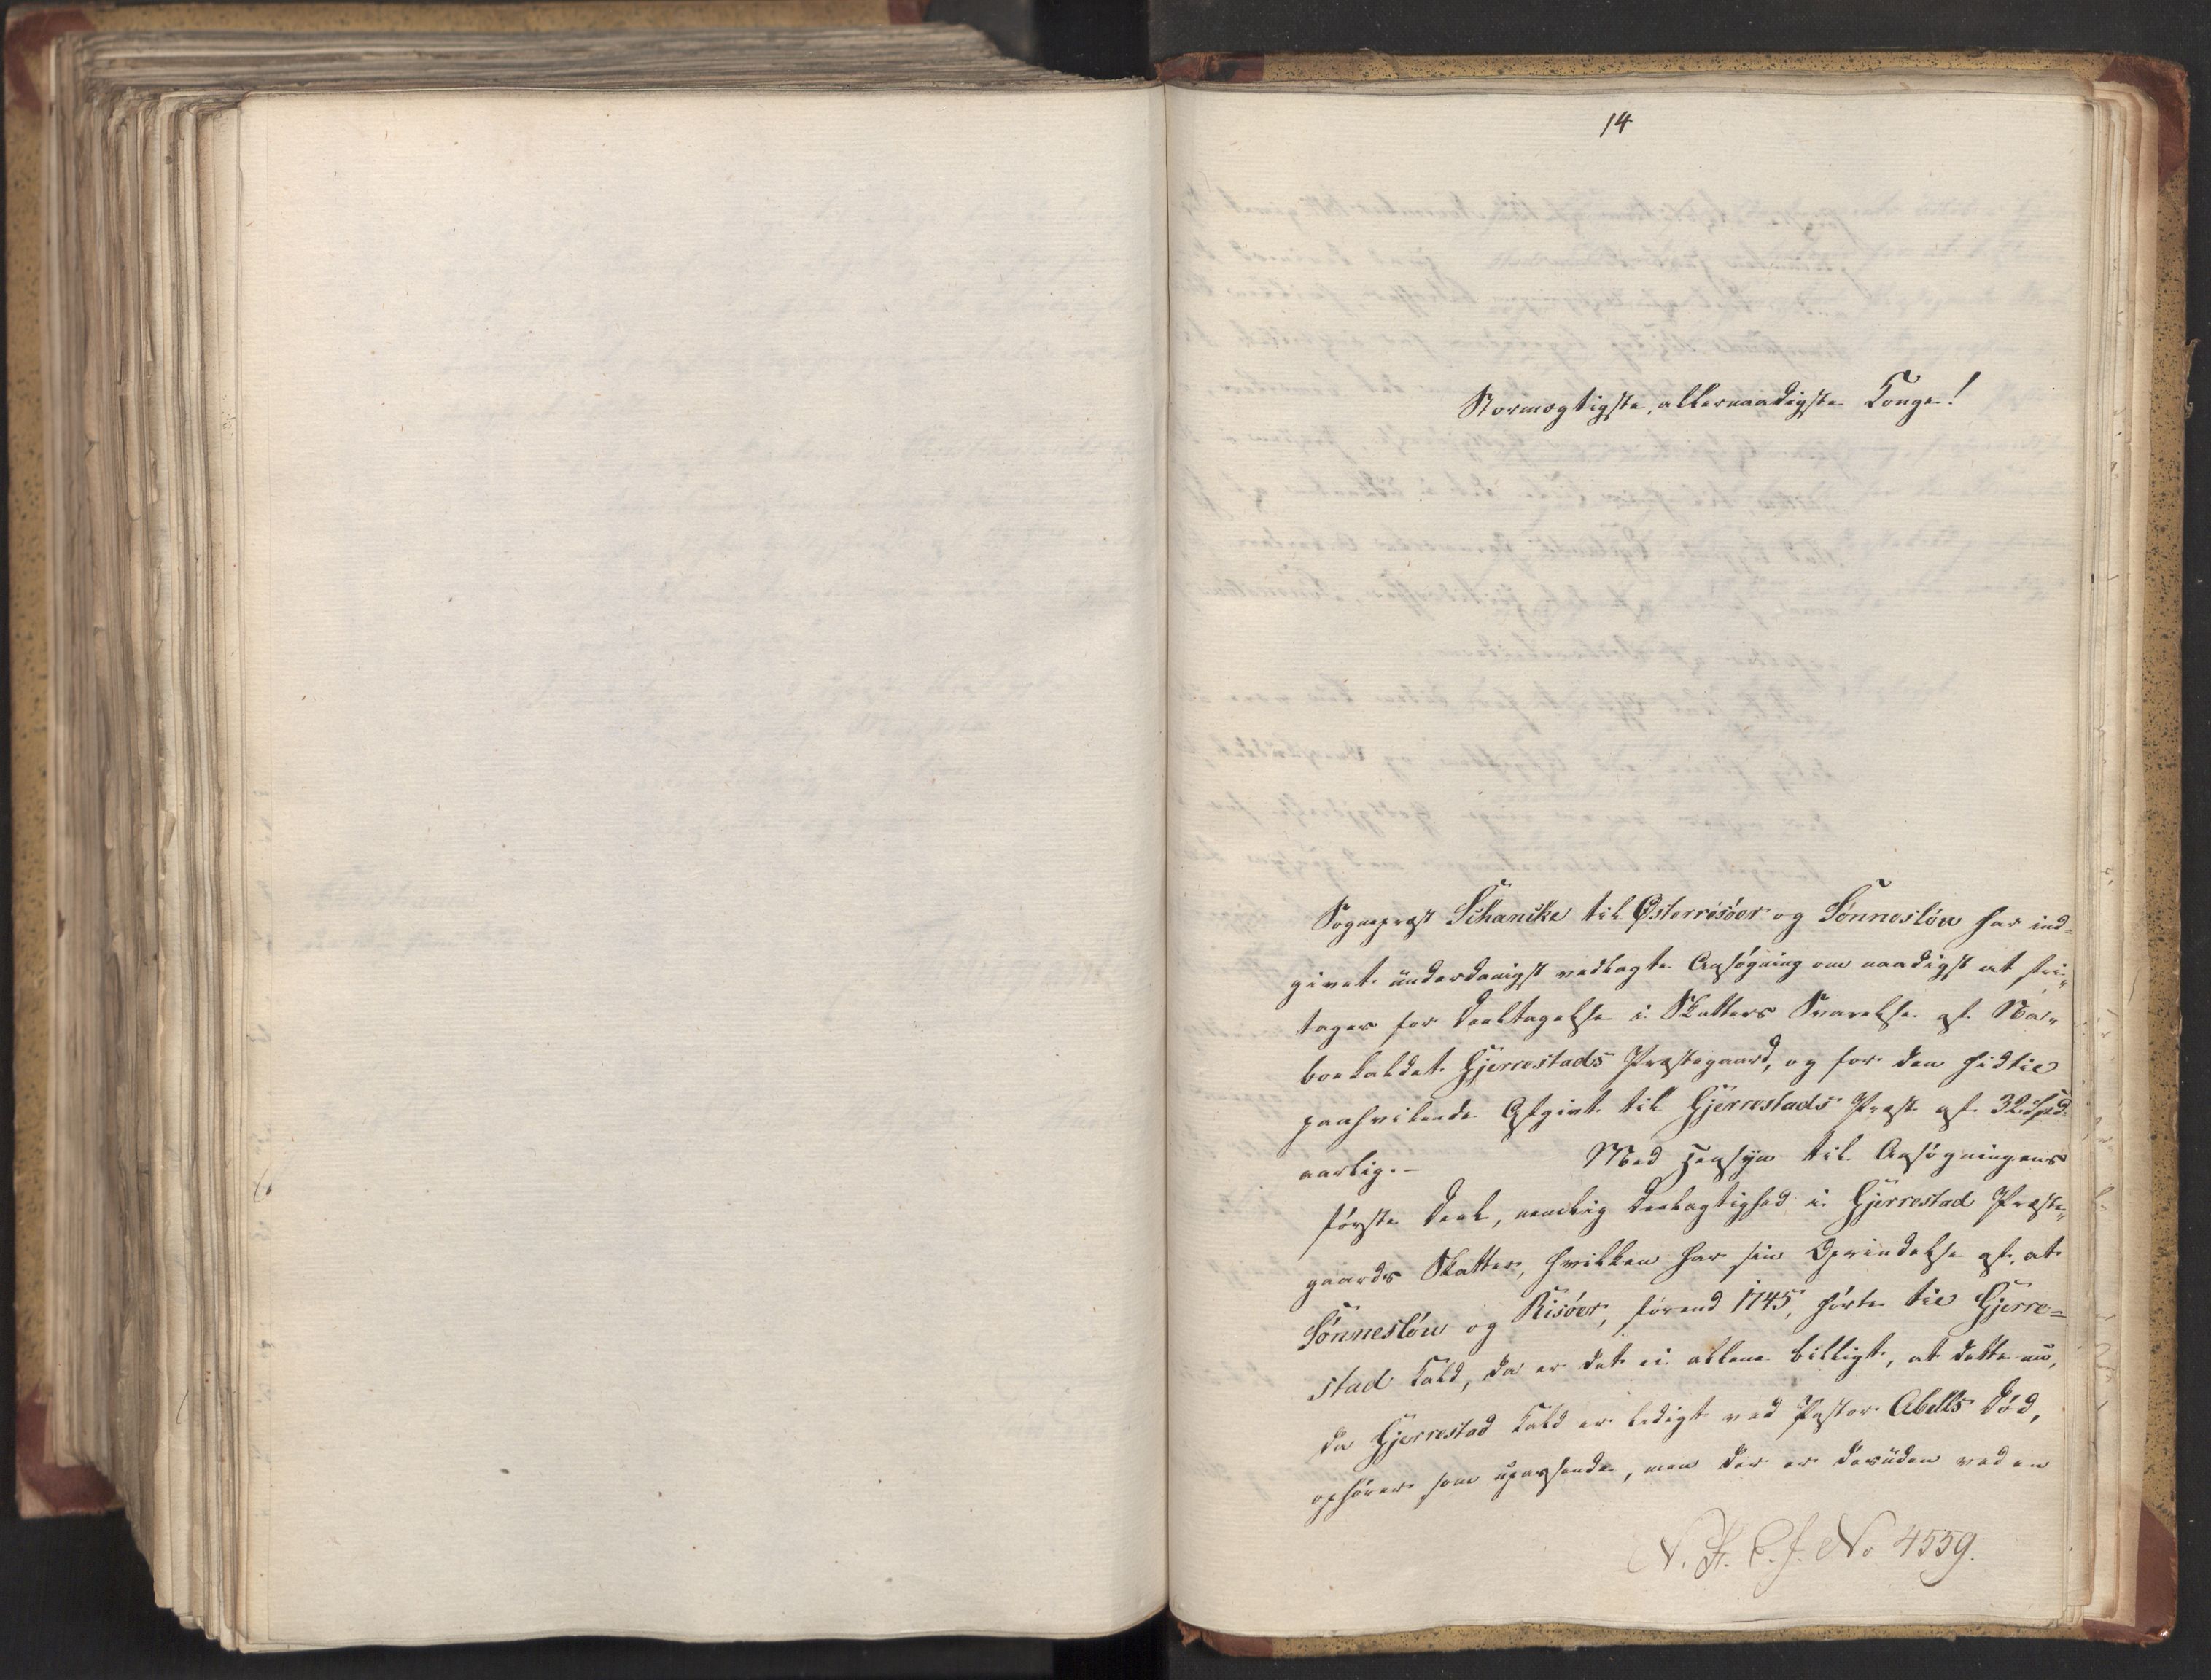 14
Stormægtigste, allernaadigste Konge!
Sognepræst Schanche til Østerrisöer og Sönneslöw har ind-
givet underdanigst vedlagte Ansögning om naadigst at fri-
tages for Deeltagelse i Skatters Svarelse af Na-
boekaldet Gjerrestads Præstegaard, og for den hidtil
paahvilende Afgivt til Gjerrestads Præst af 32
aarlig. – Med Hensyn til Ansögningens
förste Deel, nemlig Deelagtighed i Gjerrestad Præste-
gaards Skatter, hvilken har sin Oprindelse af, at
Sönneslöw og Risöer, förend 1745, hörte til Gjerre=
stad Kald, da er det ei allene billigt, at dette nu,
da Gjerrestad Kald er ledigt ved Pastor Abells Död,
ophörer som upassende, men der er desuden ved en
No 4559.